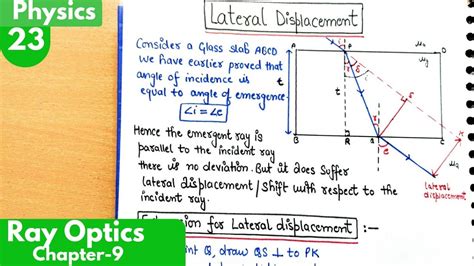 Physics
23
Lateral Displacement
Consider a Glass slab ABCD
we have earlier proved that
angle of incidence is
equal to angle of emergence
∠i = ∠e
Hence the emergent ray is
parallel to the incident ray
there is no deviation. But it does suffer
lateral displacement/shift with respect to
the incident ray.
Expression for Lateral displacement :-
point Q, draw QS ⊥ to PK
A
P
D
t
t
B
R
Q
C
i
r
δ
e
S
K
M
lateral
displacement
Ray Optics
Chapter-9